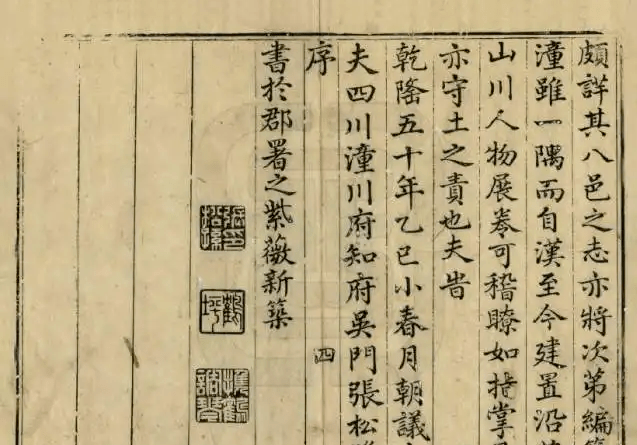 頗詳其八邑之志亦將次第編
潼雖一隅而自漢至今建置沿
山川人物展卷可稽瞭如指掌
亦守土之責也夫旹
乾隆五十年乙巳小春月朝議
夫四川潼川府知府吳門張松
序
四
書於郡署之紫薇新築
鶴坪